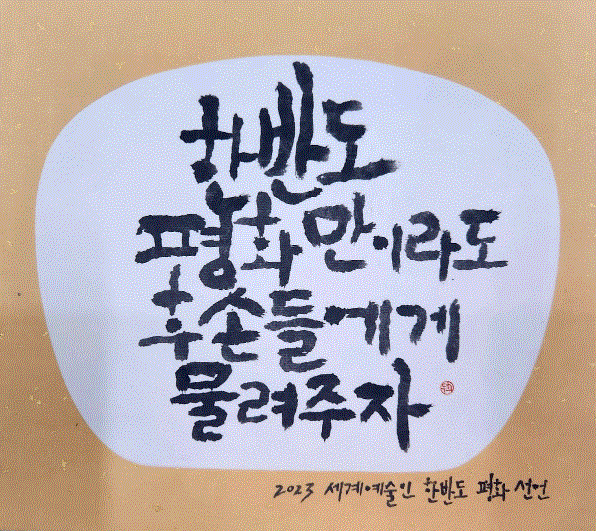 한반도
평화만이라도
후손들에게
물려주자
2023 세계예술인 한반도 평화 선언